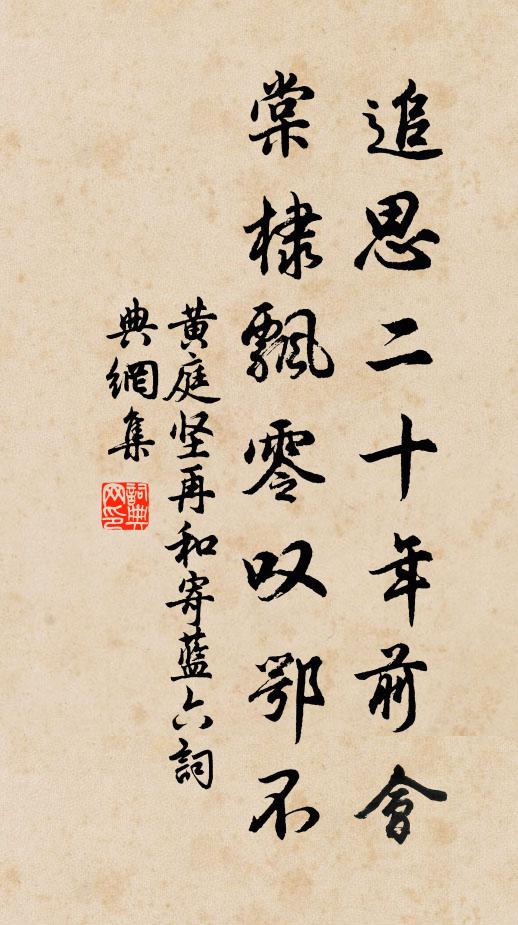 追思二十年前會
棠棣飄零叹鄂不
黃庭坚再和寄藍六詞
典網集
詞典网印